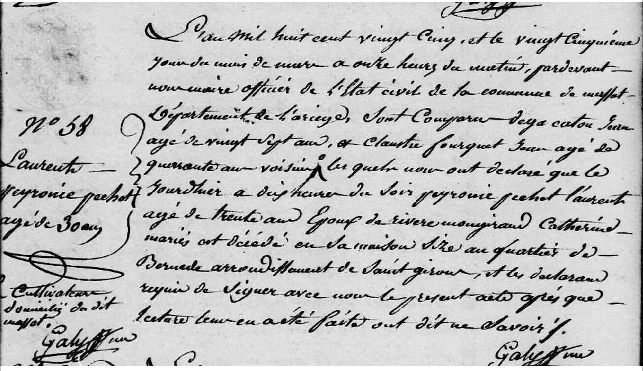 L'an mil huit cent vingt cinq, et le vingt cinquième
jour du mois de mars a onze heures du matin, pardevant
nous maire officier de l'Etat civil de la commune de massat
Département de l'ariege, sont comparu dega catou Jean
agé de vingt sept ans, et claustre fourquet Jean agé de
quarante ans voisins les quels nous ont declaré que le
Jourdhier a dix heures du soir peyronie pechot laurent
agé de trente ans Epoux de rivere mongirand Catherine
mariés ont décédé en sa maison size au quartier de
Bernede arrondissement de Saint girons, et les declarans
requis de signer avec nous le present acte après que
lecture leur en a été faite ont dit ne savoir
N° 58
Laurent
peyronie pechot
agé de 30 ans
Cultivateur
domicilié du dit
massat.